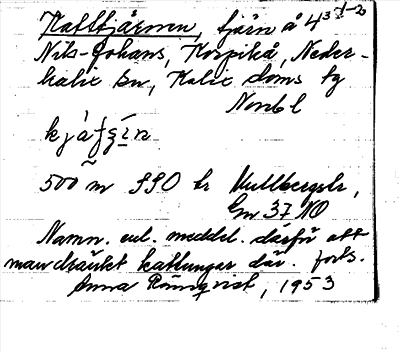 Kattjärnen, tjärn å 4 3 f-2
Nils-Johans, Korpikå, Neder-
kalix sn, Kalix doms tg
Norrb l
500 m SSO br Mullbergstr,
Gm 37 NO
Namn. enl. meddel. därför att
man dränkt kattungar där. forts.
Anna Rönnqvist, 1953